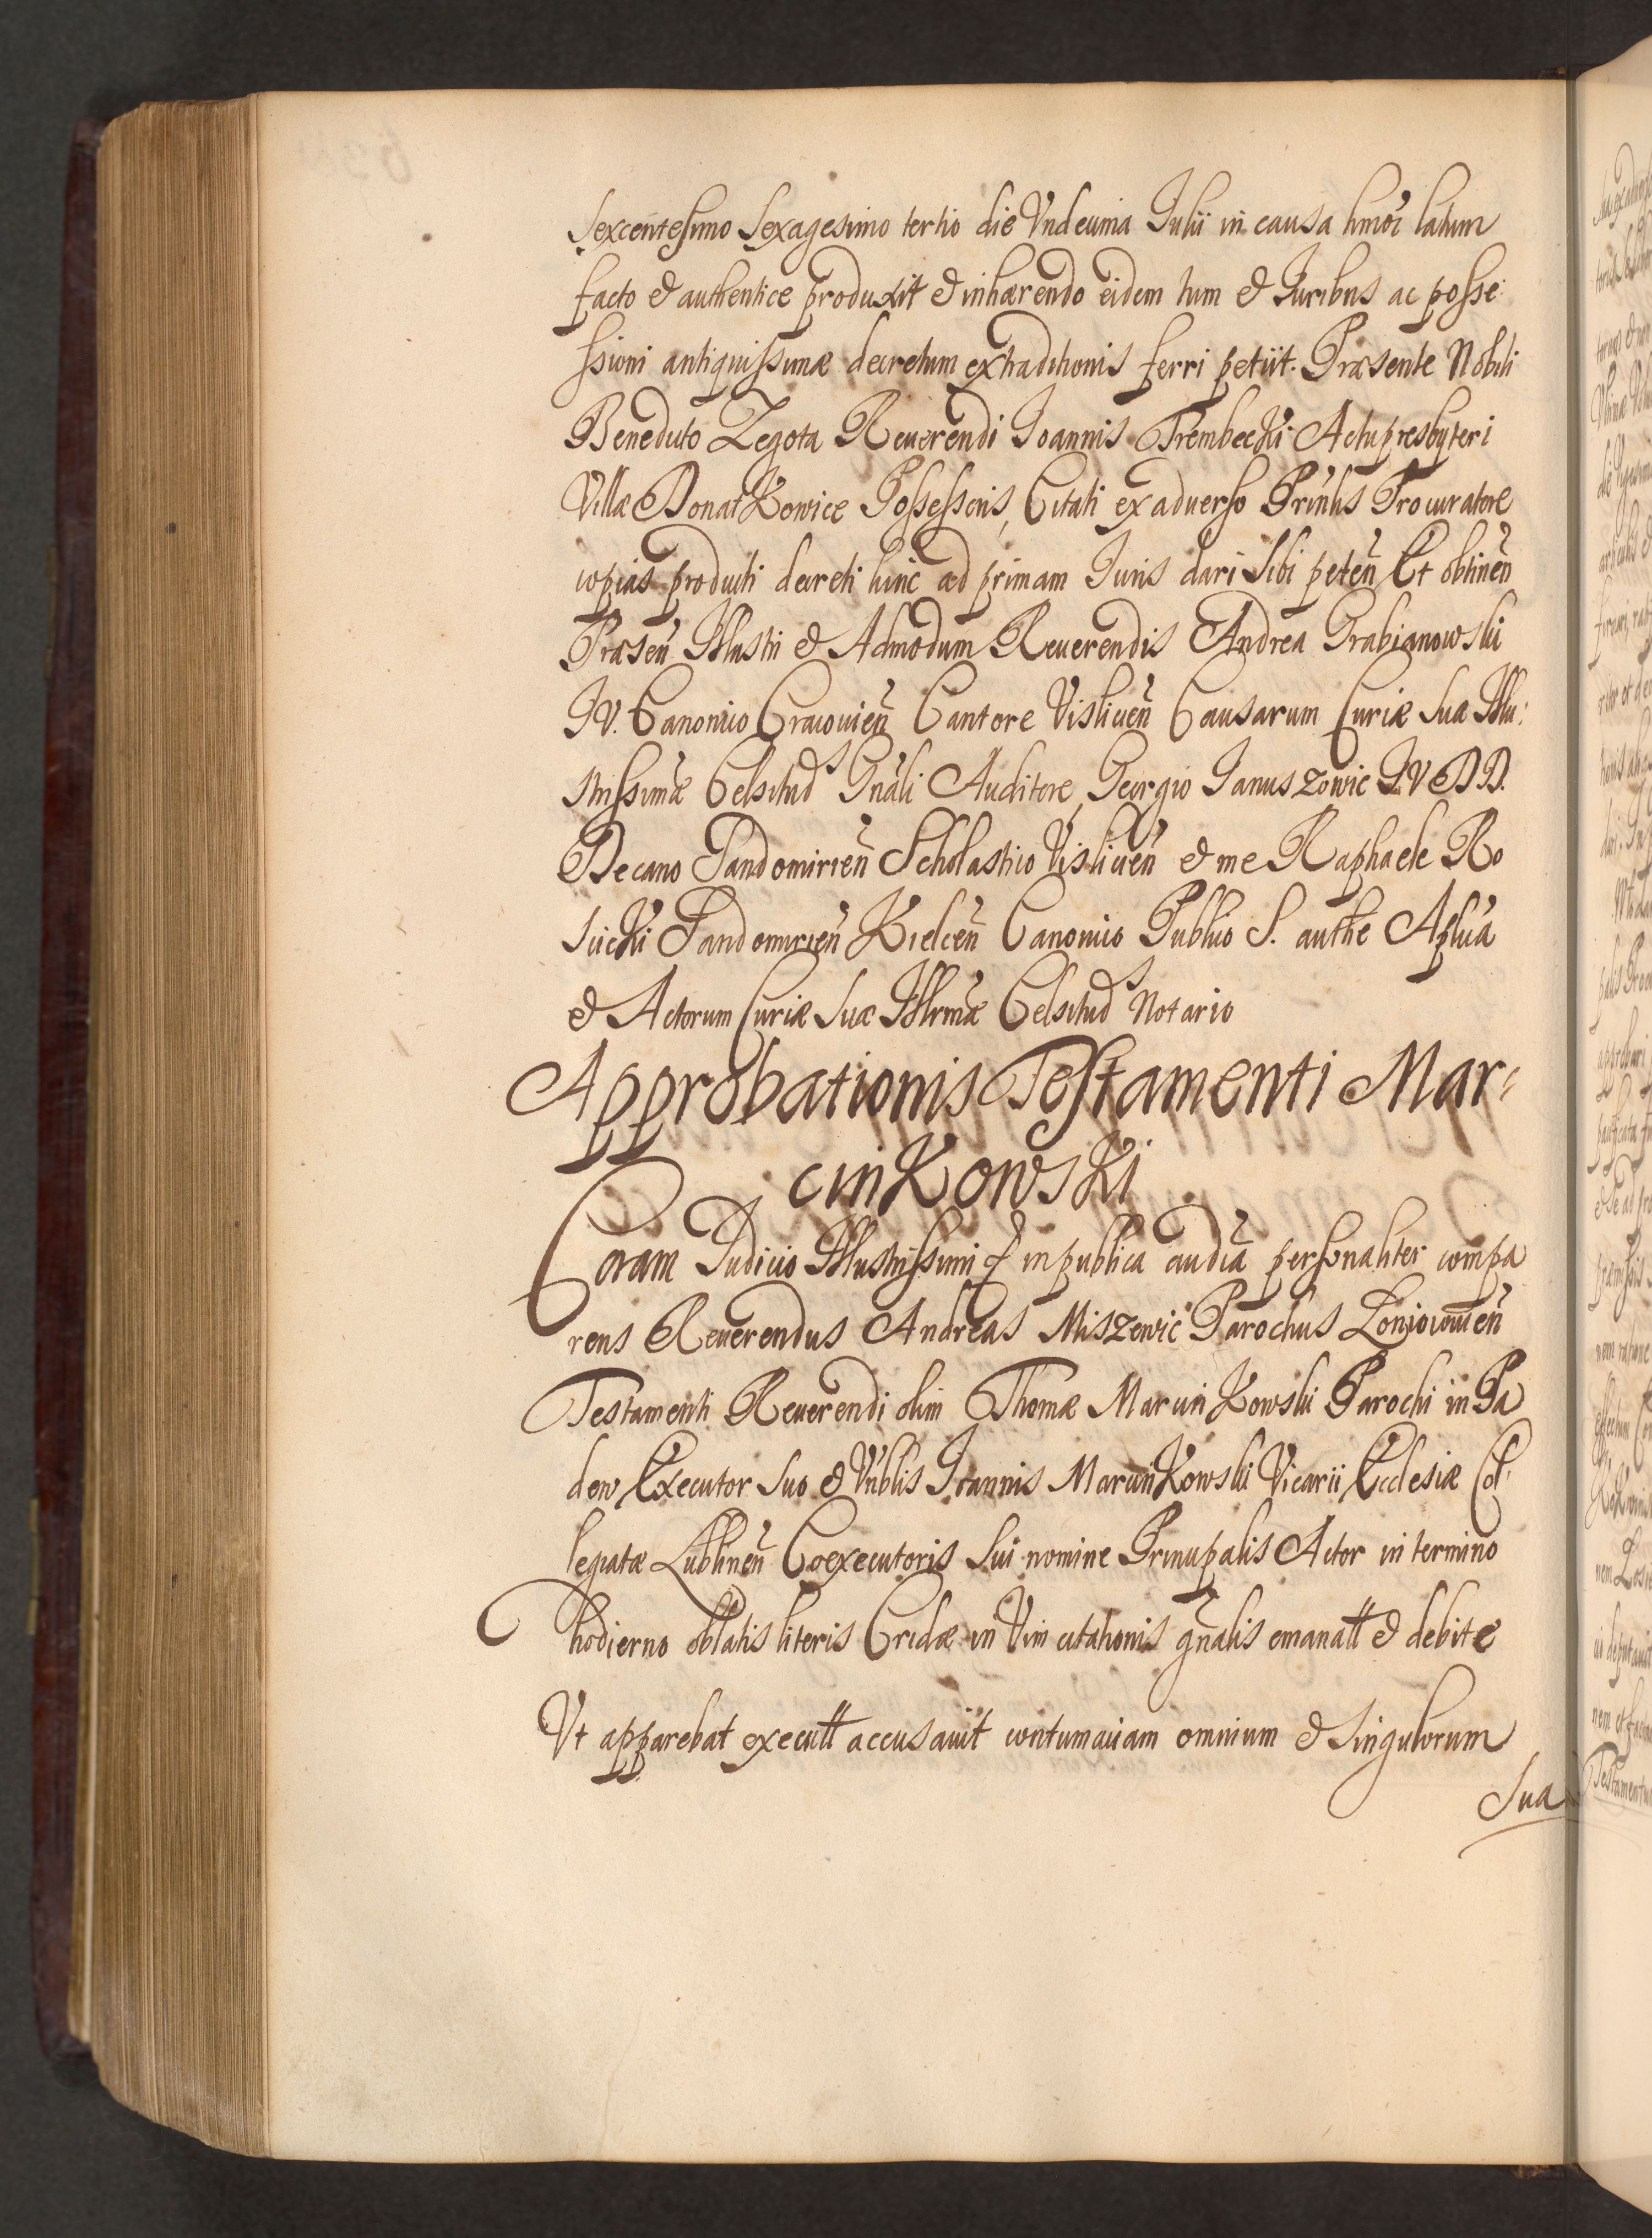 sexcentesimo sexagesimo tertio die Vndecima Julii in causa hmoi latum
facto & authentice produxit & inhærendo eidem tum & Juribus ac posse:
ssioni antiquissimæ decretum extraditionis ferri petiit. Præsente Nobili
Benedicto Zegota Reuerendi Joannis Trembecki Actupresbyteri
Villæ Donatkowice Possessoris, Citati ex aduerso Prinlis Procuratore
copias producti decreti hinc ad primam Juris dari sibi peteñ Et obtineñ
Præseñ Illustri & Admodum Reuerendis Andrea Grabianowski
J.V. Canonico Cracouieñ Cantore Vislicieñ Causarum Curiæ suæ Illu:
strissimæ Celsitud Gnali Auditore, Georgio Januszowic J.V.D.D.
Decano Sandomirieñ Scholastico Vislicieñ & me Raphaele Ro
sicki Sandomirieñ Kielceñ Canonico Publico S. authe Aplica
& Actorum Curiæ suæ Illrmæ Celsitud Notario
Approbationis Testamenti Mar:
cinkowski
Coram Judicio Illustrissimi & in publica audia personaliter compa
rens Reuerendus Andreas Miszewic Parochus
Testamenti Reuerendi olim Thomæ Marcinkowski Parochi in Pa
dew Executor suo & Vnblis Joannis Marcinkowski Vicarii Ecclesiæ Col:
legiatæ Lublineñ Coexecutoris sui nomine Principalis Actor in termino
hodierno oblatis literis Cridæ in Vim citationis gnalis emanatt & debite
Vt apparebat executt accusauit contumaciam omnium & singulorum
sua